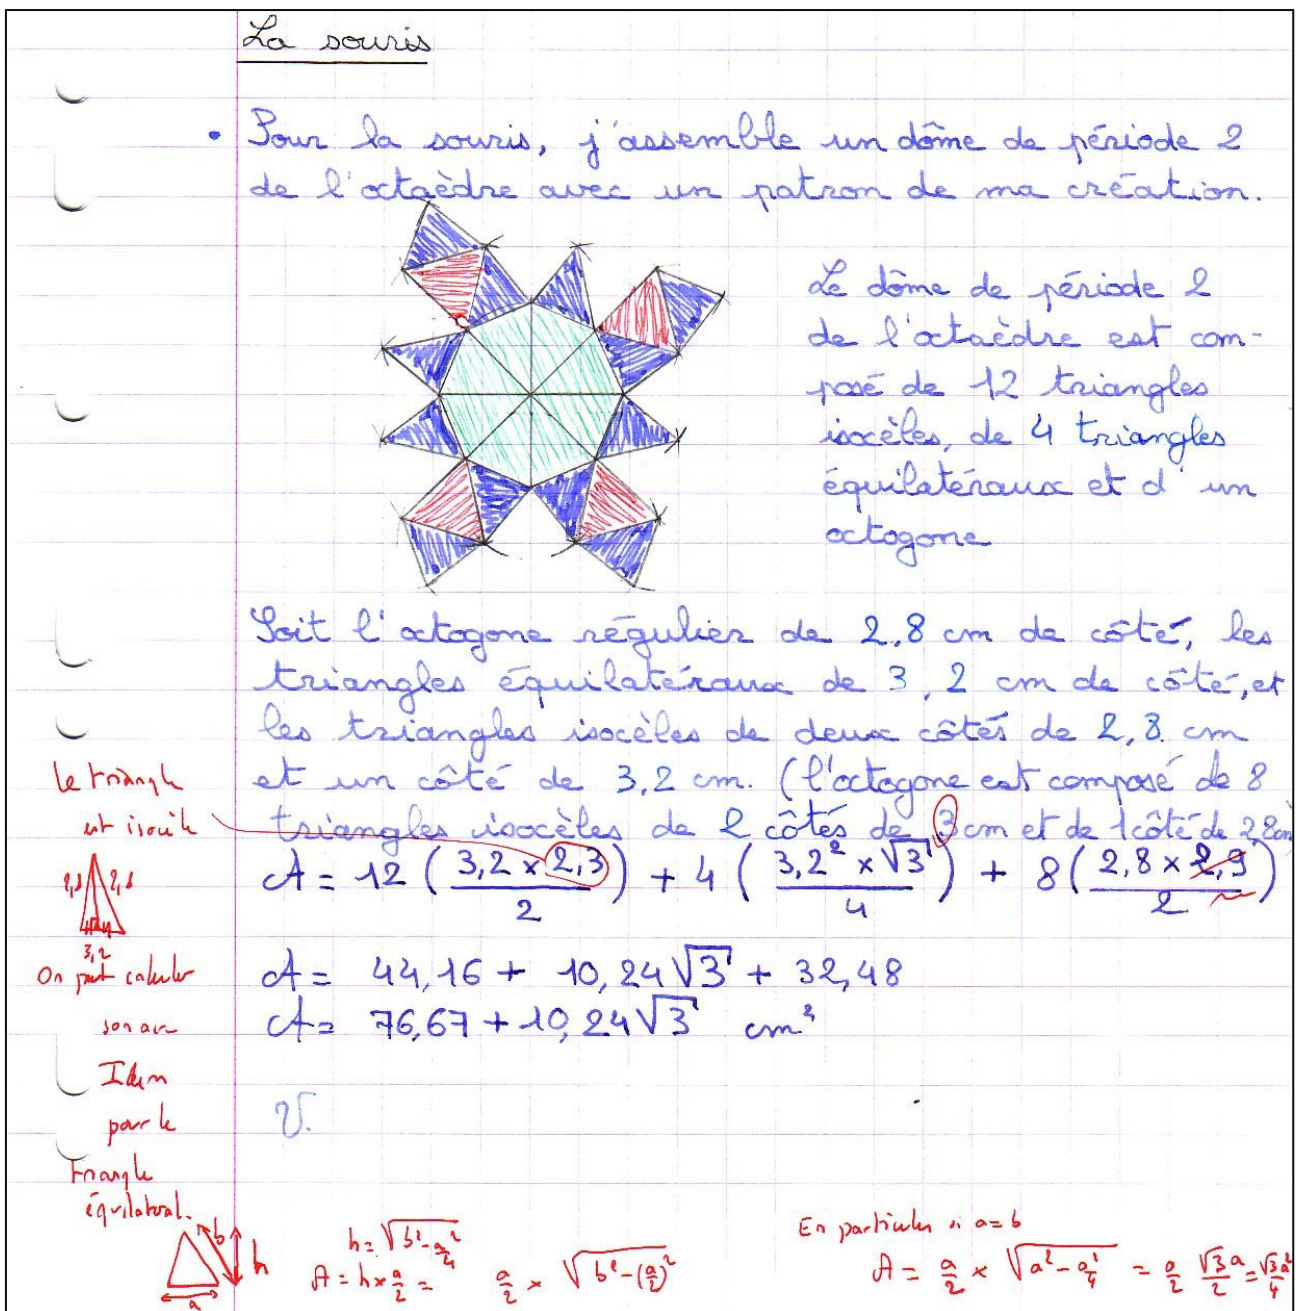 La souris
• Pour la souris, j'assemble un dôme de période 2
de l'octaèdre avec un patron de ma création.
Le dôme de période 2
de l'octaèdre est com-
posé de 12 triangles
isocèles, de 4 triangles
équilatéraux et d'un
octogone
Soit l'octogone régulier de 2,8 cm de côté, les
triangles équilatéraux de 3,2 cm de côté, et
les triangles isocèles de deux côtés de 2,8 cm
et un côté de 3,2 cm. (l'octogone est composé de 8
triangles isocèles de 2 côtés de 3 cm et de 1 côté de 2,8cm
A = 12 (3,2 × 2,3 / 2) + 4 (3,2² × √3 / 4) + 8 (2,8 × 2,9 / 2)
A = 44,16 + 10,24√3 + 32,48
A = 76,67 + 10,24√3 cm²
V.
le triangle
est isocèle
2,8 2,8
3,2
On peut calculer
son aire
Idem
pour le
triangle
équilatéral.
b h
a
h = √(b² - a²/4)
A = h × a/2 = a/2 × √(b² - (a/2)²)
En particulier si a = b
A = a/2 × √(a² - a²/4) = a/2 √3/2 a = √3/4 a²